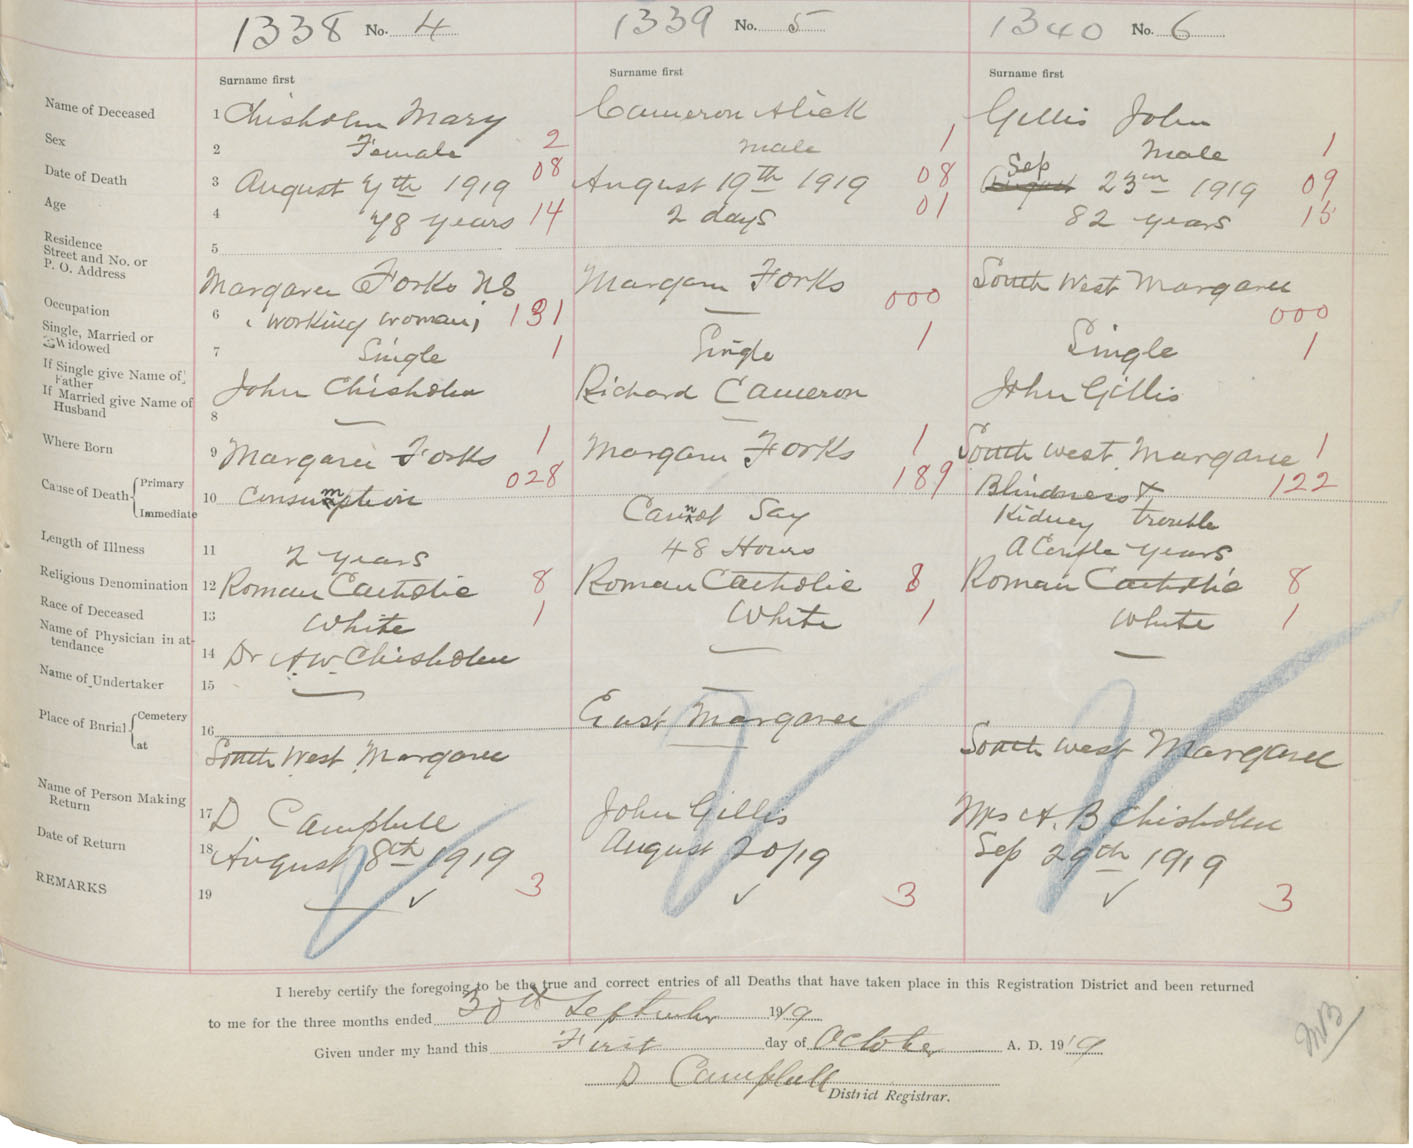 1338 No. 4 1339 No. 5 1340 No. 6
Surname first Surname first Surname first
Name of Deceased 1 Chisholm Mary Cameron Alick Gillis John
Sex 2 Female 2 male 1 Male 1
Date of Death 3 August 7th 1919 08 August 19th 1919 08 August Sep 23rd 1919 09
Age 4 78 years 14 2 days 01 82 years 15
Residence
Street and No. or
P. O. Address 5
Margaree Forks NS Margaree Forks South West Margaree
Occupation 6 "working woman" 131 — 000 000
Single, Married or
Widowed 7 Single 1 Single 1 Single 1
If Single give Name of
Father John Chisholm Richard Cameron John Gillis
If Married give Name of
Husband 8 — —
Where Born 9 Margaree Forks 1 Margaree Forks 1 South West Margaree 1
Cause of Death { Primary 10 Consumption 028 189 Blindness & 122
Immediate Cannot Say Kidney trouble
Length of Illness 11 2 years 48 Hours A Couple years
Religious Denomination 12 Roman Catholic 8 Roman Catholic 8 Roman Catholic 8
Race of Deceased 13 White 1 White 1 White 1
Name of Physician in at-
tendance 14 Dr A. W. Chisholm — —
Name of Undertaker 15 — —
Place of Burial { Cemetery 16 East Margaree
at South West Margaree — South West Margaree
Name of Person Making
Return 17 D Campbell John Gillis Mrs A. B Chisholm
Date of Return 18 August 8th 1919 August 20/19 Sep 29th 1919
REMARKS 19 — ✓ 3 ✓ 3 ✓ 3
I hereby certify the foregoing to be the true and correct entries of all Deaths that have taken place in this Registration District and been returned
to me for the three months ended 30th September 1919
Given under my hand this First day of October A. D. 1919
D Campbell
District Registrar.
MB